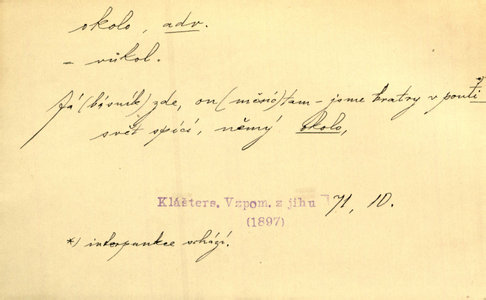 okolo, adv.
– vůkol.
Já (básník) zde, on (měsíc) tam – jsme bratry v pouti *)
svět spící, němý okolo,
Klášters. Vzpom. z jihu 71, 10.
(1897)
*) interpunkce schází.